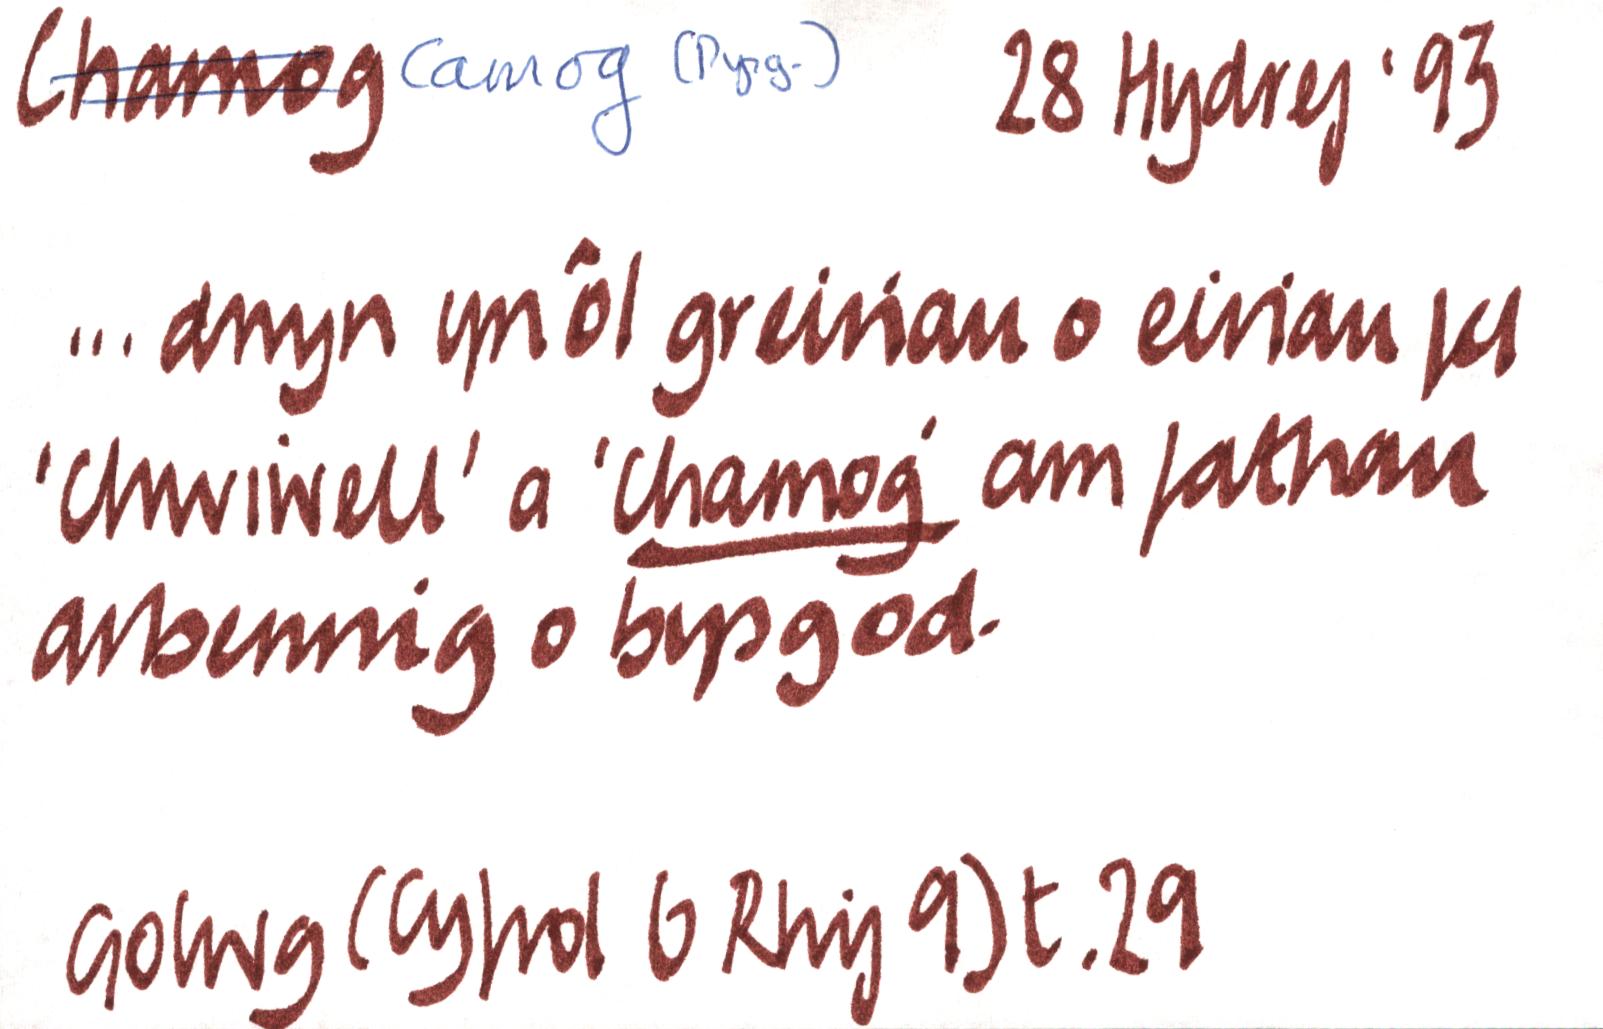 Chamog Camog (Pysg.) 28 Hydref '93
... dwyn yn ôl greiriau o eiriau fel
'chwiwell' a 'chamog' am fathau
arbennig o bysgod.
Golwg (Cyfrol 6 Rhif 9) t.29